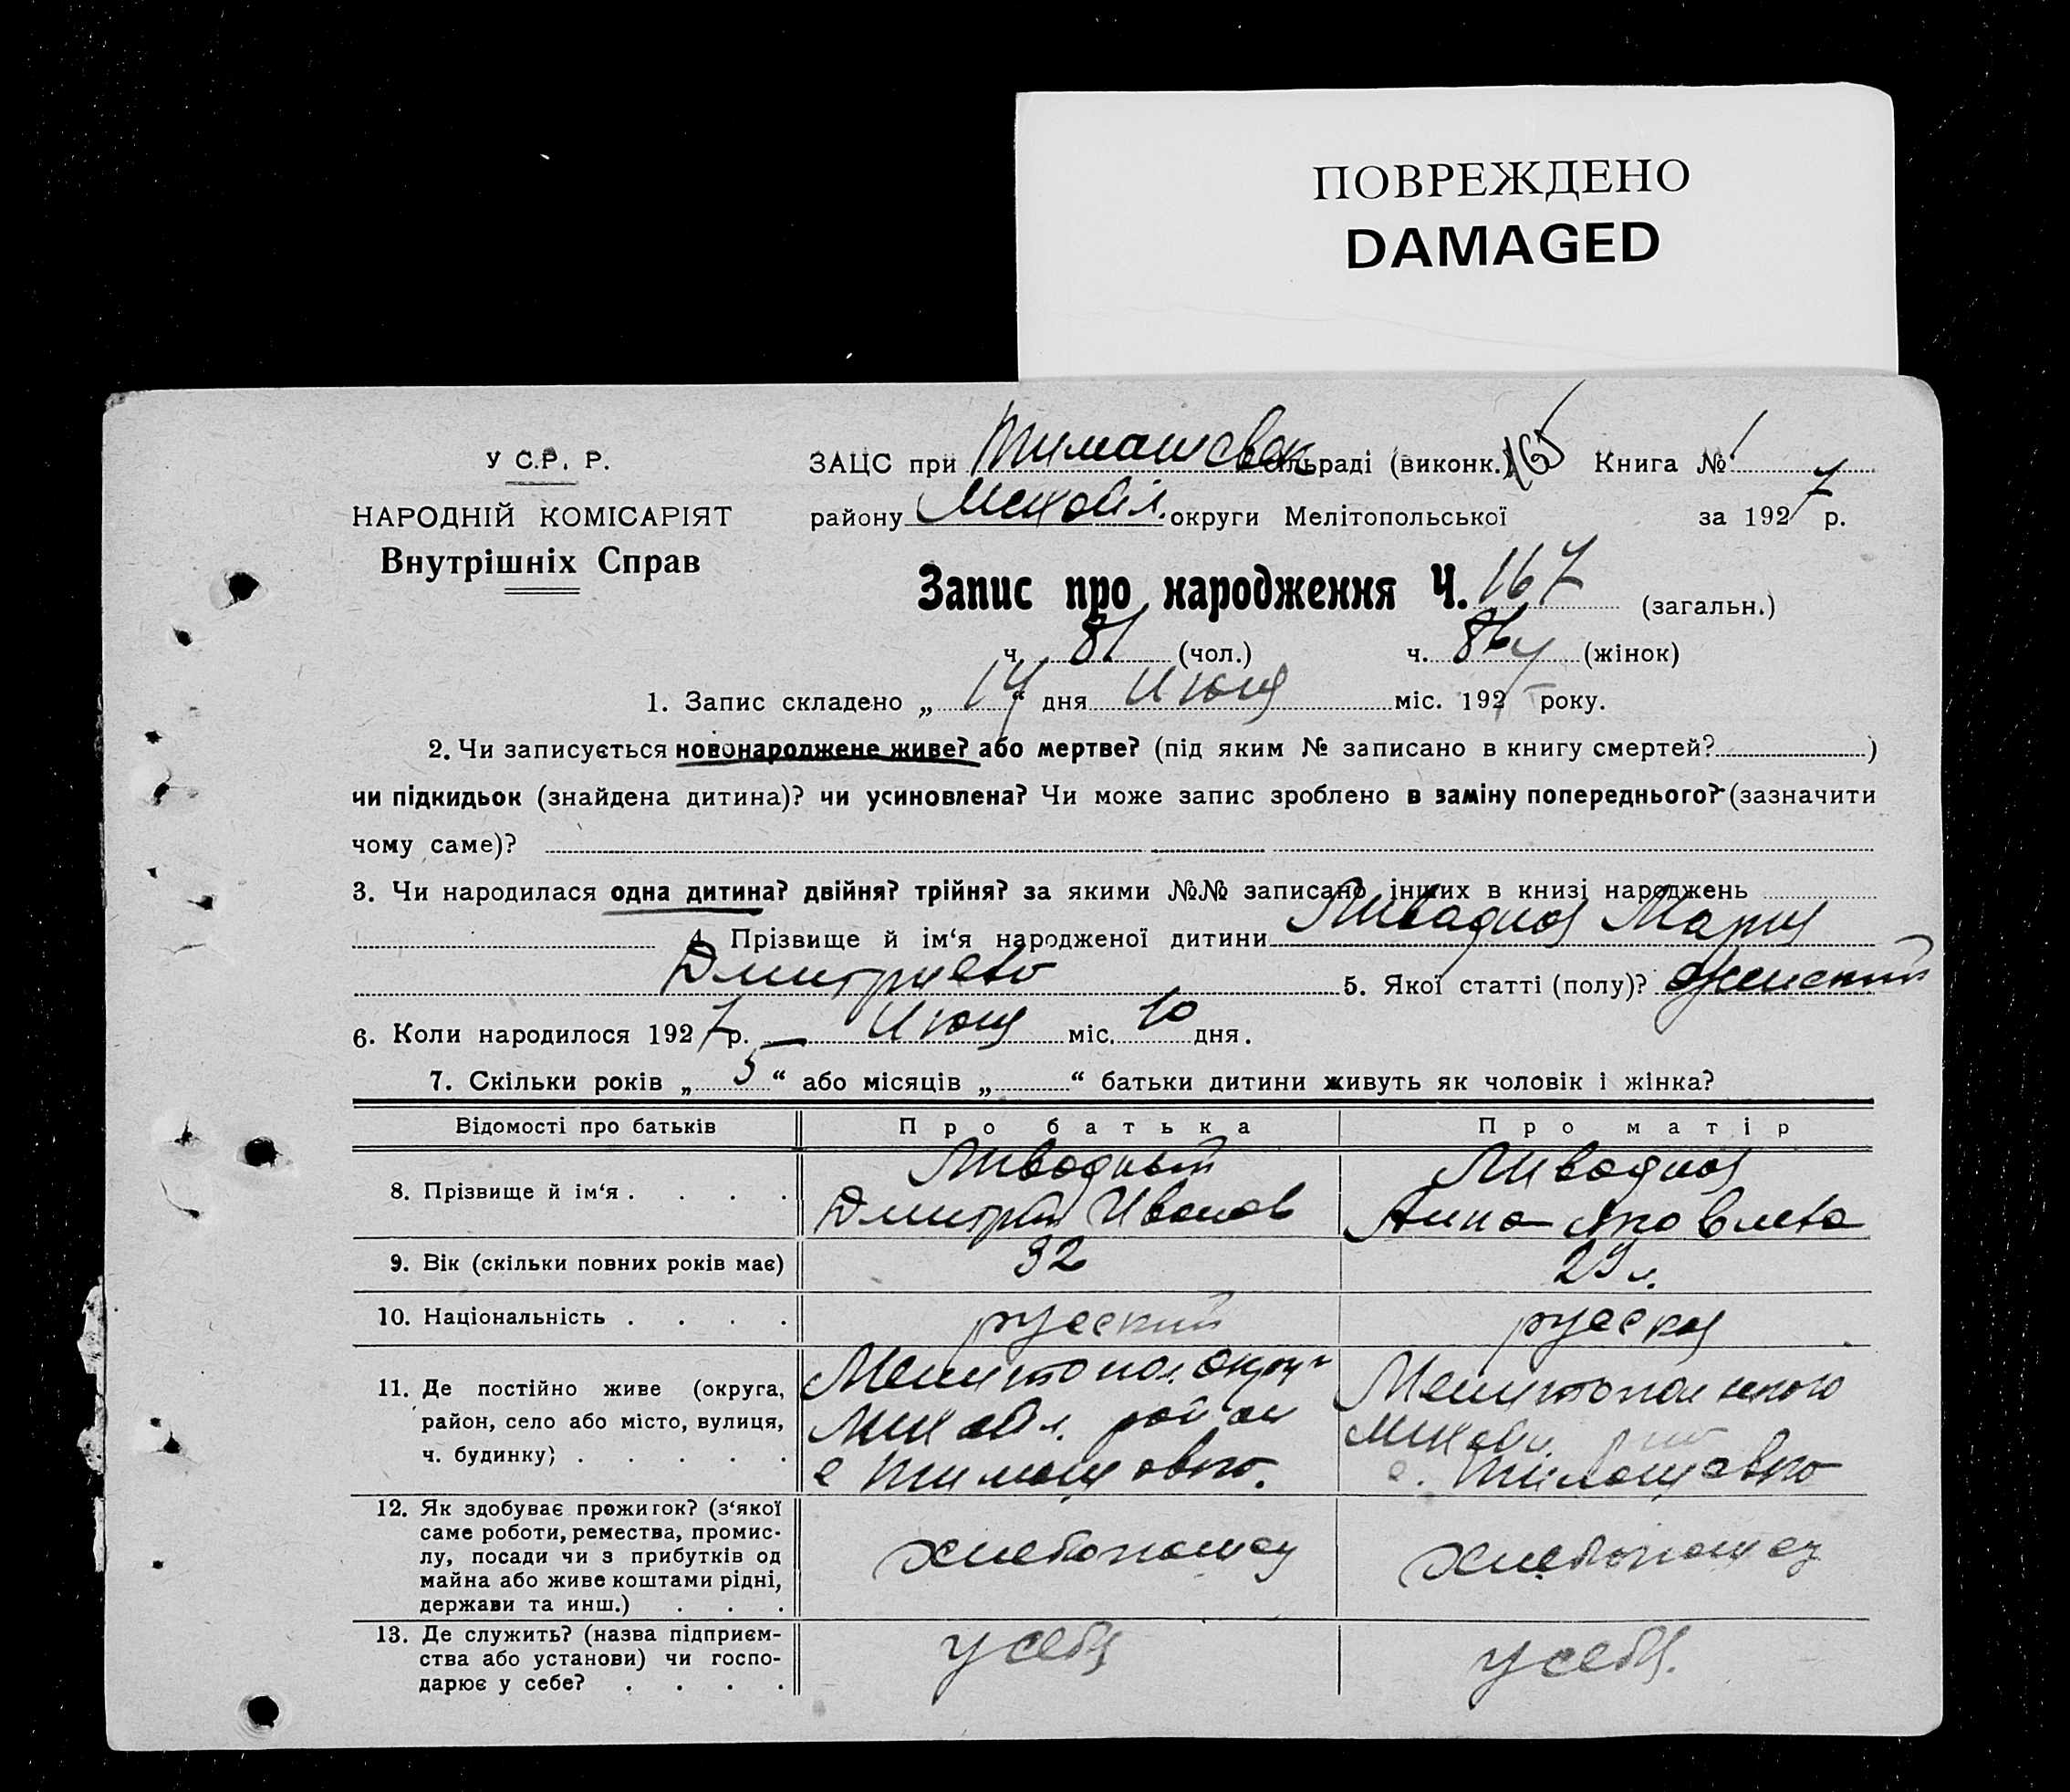 ПОВРЕЖДЕНО
DAMAGED
У С.Р. Р.
НАРОДНІЙ КОМІСАРІЯТ
Внутрішніх Справ
ЗАЦС при Тимашевск ільраді (виконк.) 165 Книга № 1
району Михайл. округи Мелітопольської за 1927 р.
Запис про народження Ч. 167 (загальн.)
ч. 81 (чол.) ч. 86 (жінок)
1. Запис складено „ 14 “ дня Июня міс. 1927 року.
2. Чи записується новонароджене живе? або мертве? (під яким № записано в книгу смертей? )
чи підкидьок (знайдена дитина)? чи усиновлена? Чи може запис зроблено в заміну попереднього? (зазначити
чому саме)?
3. Чи народилася одна дитина? двійня? трійня? за якими №№ записано інших в книзі народжень
4. Прізвище й ім‘я народженої дитини Ливадная Мария
Дмитриева 5. Якої статті (полу)? женский
6. Коли народилося 1927 р. Июня міс. 10 дня.
7. Скільки років „ 5 “ або місяців „ “ батьки дитини живуть як чоловік і жінка?
Відомості про батьків Про батька Про матір
8. Прізвище й ім‘я . . . . Ливадный Дмитрий Иванов Ливадная Анна Яковлева
9. Вік (скільки повних років має) 32 29 л.
10. Національність . . . . русский русская
11. Де постійно живе (округа, Мелитопол. округ Мелитопольского
район, село або місто, вулиця, Михайл. район Михайл. рай
ч. будинку) . . . . . с Тимашовка. с. Тимашевка
12. Як здобуває прожиток? (з‘якої
саме роботи, ремества, промис-
лу, посади чи з прибутків од хлебопашец хлебопашец
майна або живе коштами рідні,
держави та инш.) . . .
13. Де служить? (назва підприєм- у себя у себя.
ства або установи) чи госпо-
дарює у себе? . . . .